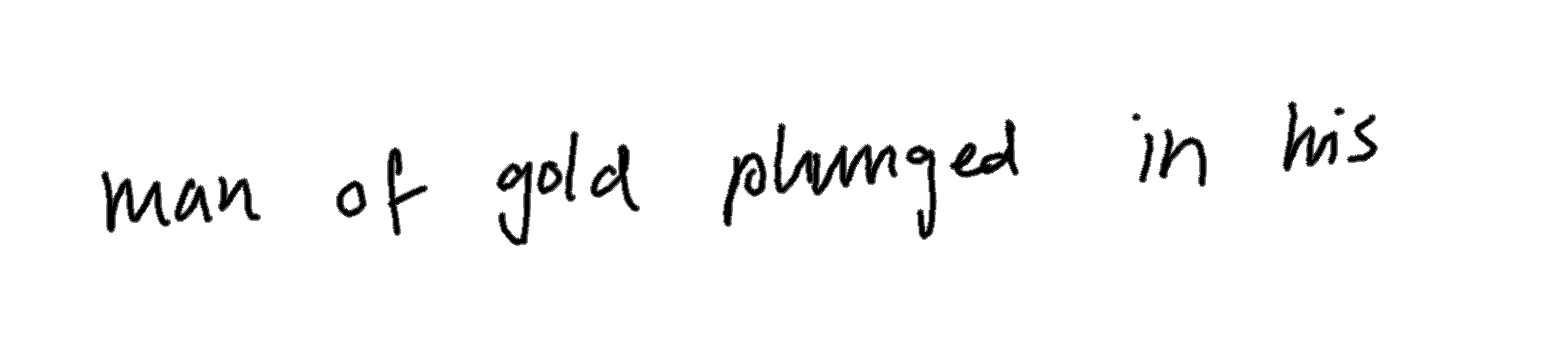 man of gold plunged in his